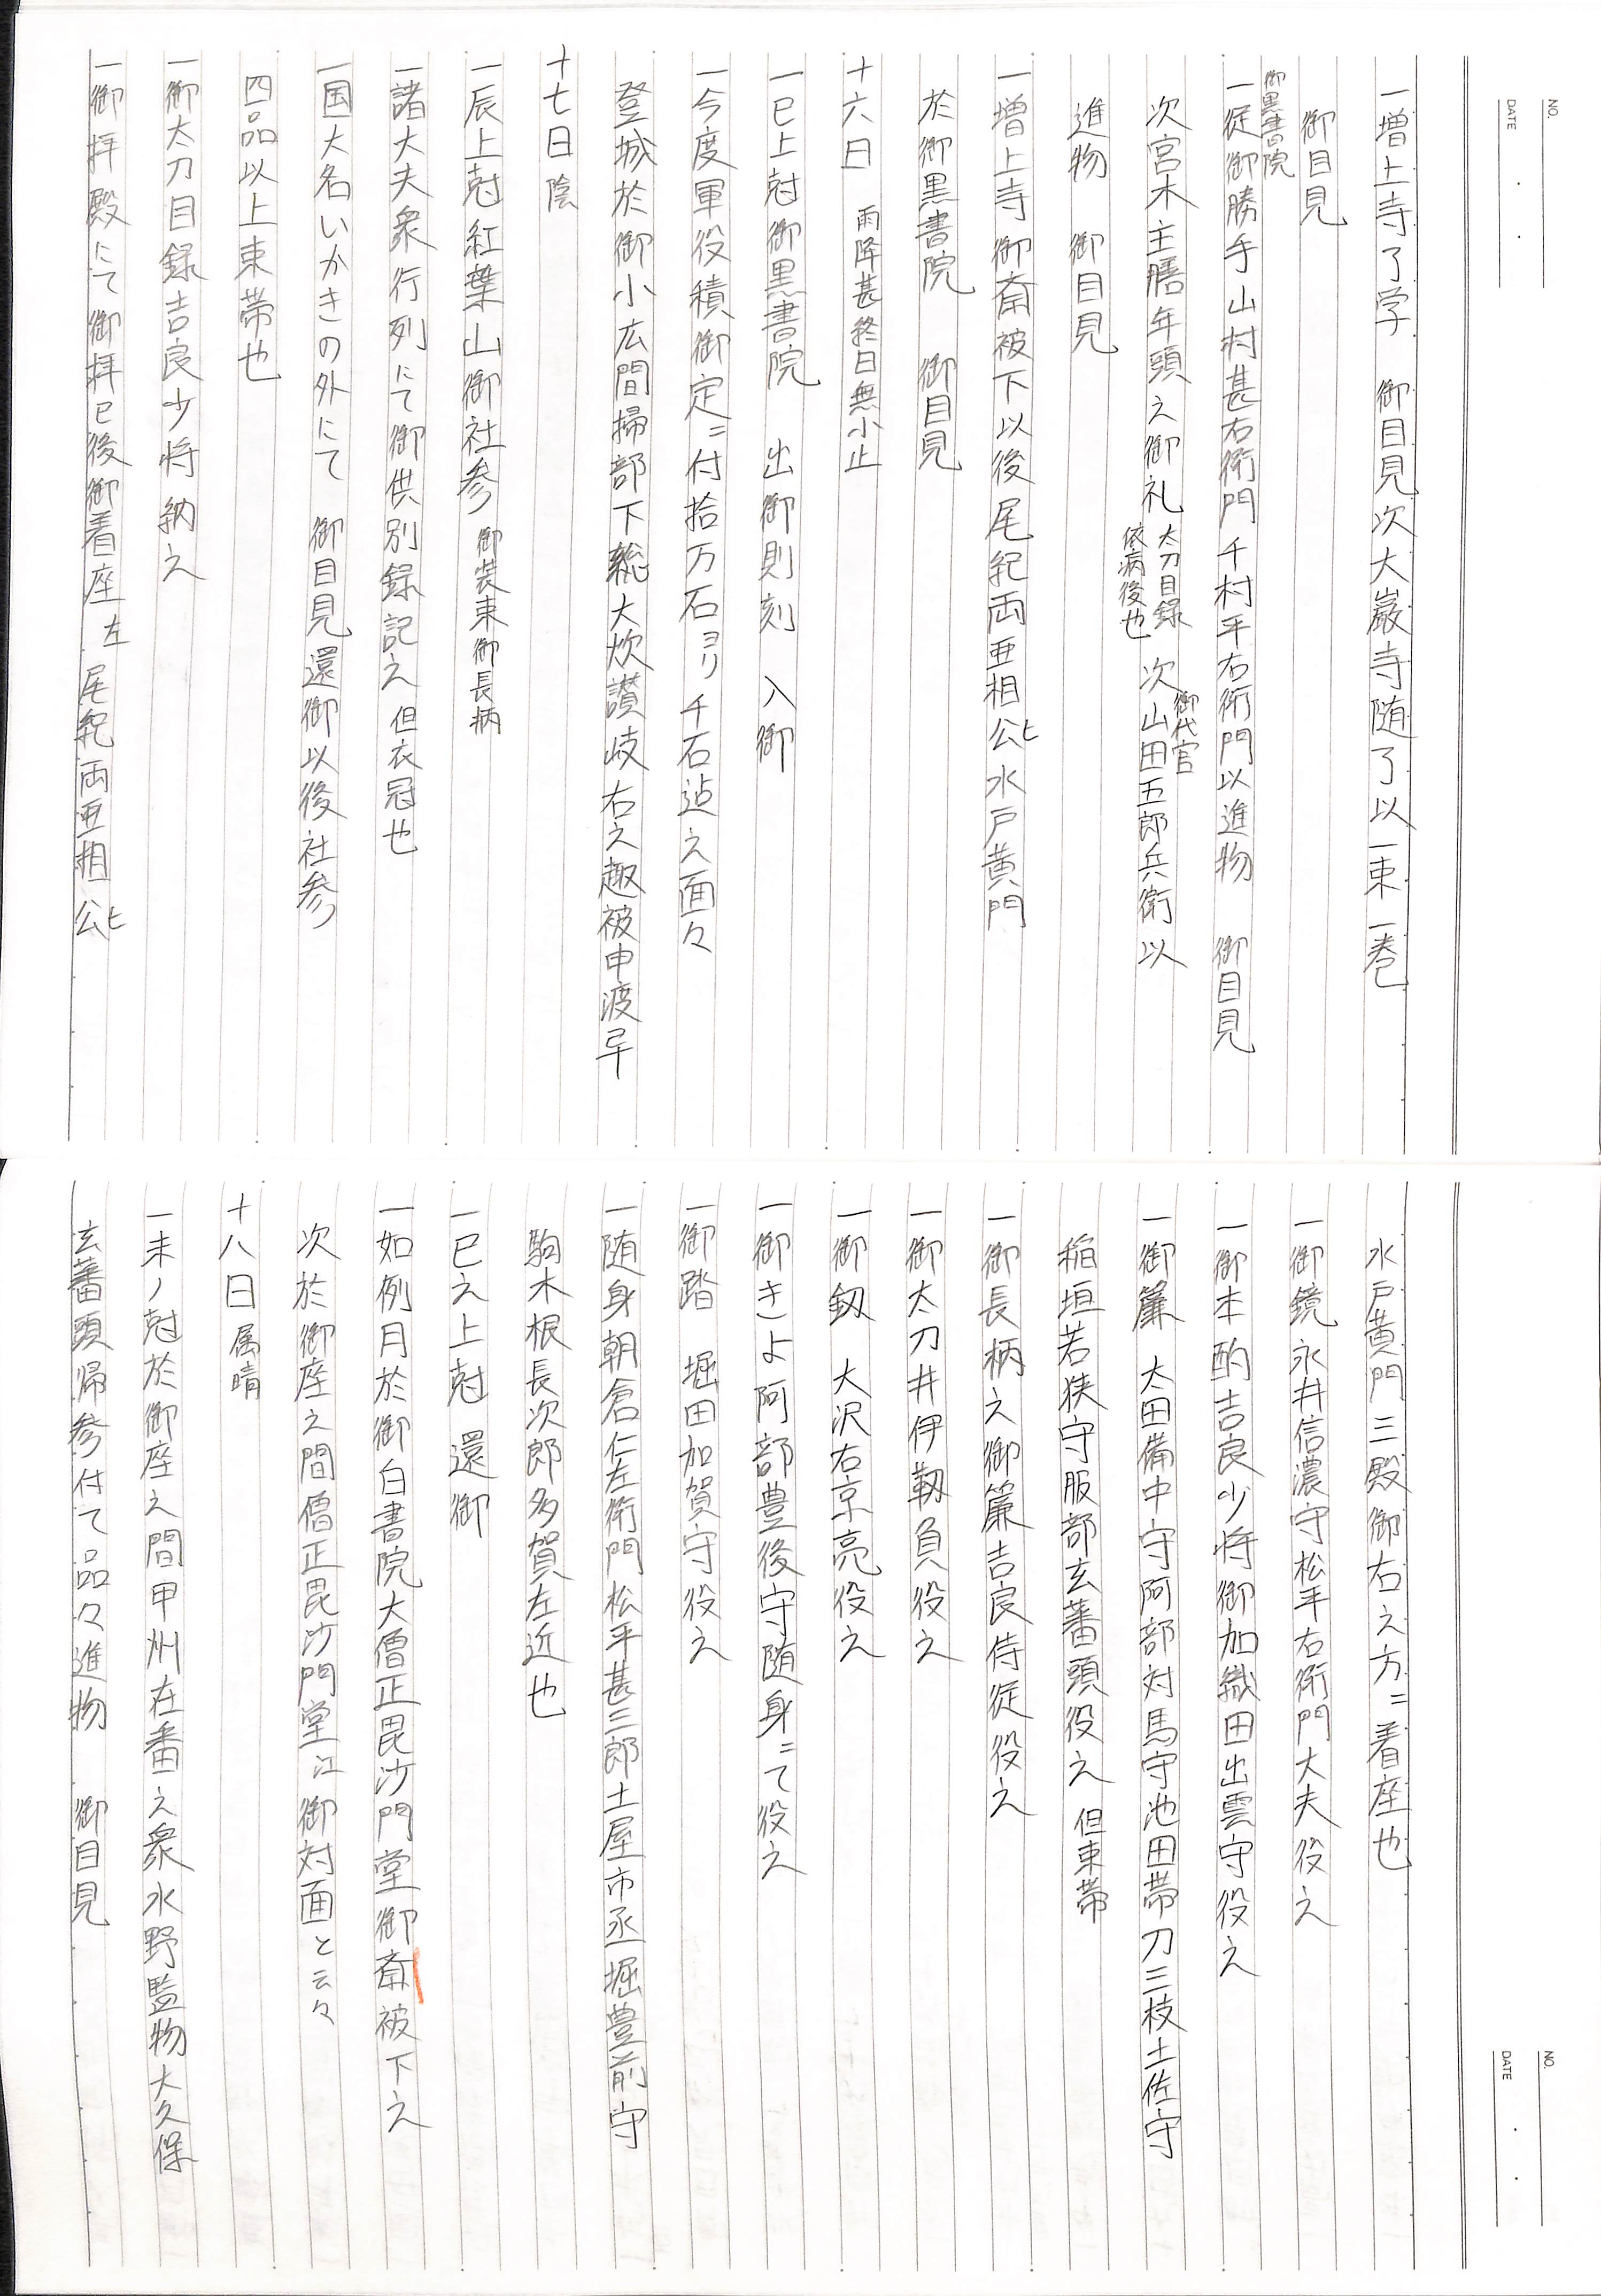 NO.
DATE
一増上寺了学　御目見次大巌寺随了以一束一巻
御目見
御黒書院
一従御勝手山村甚右衛門千村平右衛門以進物　御目見
次宮木主膳年頭之御礼 太刀目録 依病後也 次山田五郎兵衛以
御代官
進物　御目見
一増上寺御斎被下以後尾紀両亜相公ヒ水戸黄門
於御黒書院　御目見
十六日　雨降甚終日無小止
一巳上尅御黒書院　出御則刻　入御
一今度軍役積御定ニ付拾万石ヨリ千石迠之面々
登城於御小広間掃部下総大炊讃岐右之趣被申渡早
十七日 陰
一辰上尅紅葉山御社参 御装束御長柄
一諸大夫衆行列にて御供別録記之 但衣冠也
一国大名いかきの外にて　御目見還御以後社参
四品以上束帯也
一御太刀目録吉良少将納之
一御拝殿にて御拝已後御着座左 尾紀両亜相公ヒ
NO.
DATE
水戸黄門三殿御右之方ニ着座也
一御鏡永井信濃守松平右衛門大夫役之
一御本酌吉良少将御加織田出雲守役之
一御簾　太田備中守阿部対馬守池田帯刀三枝土佐守
稲垣若狭守服部玄蕃頭役之 但束帯
一御長柄之御簾吉良侍従役之
一御太刀井伊靱負役之
一御釼　大沢右京亮役之
一御きよ阿部豊後守随身ニて役之
一御踏　堀田加賀守役之
一随身朝倉仁左衛門松平甚三郎土屋市丞堀豊前守
駒木根長次郎多賀左近也
一巳之上尅　還御
一如例月於御白書院大僧正毘沙門堂御斎被下之
次於御座之間僧正毘沙門堂江御対面と云々
十八日 属晴
一未ノ尅於御座之間甲州在番之衆水野監物大久保
玄蕃頭帰参付て品々進物　御目見